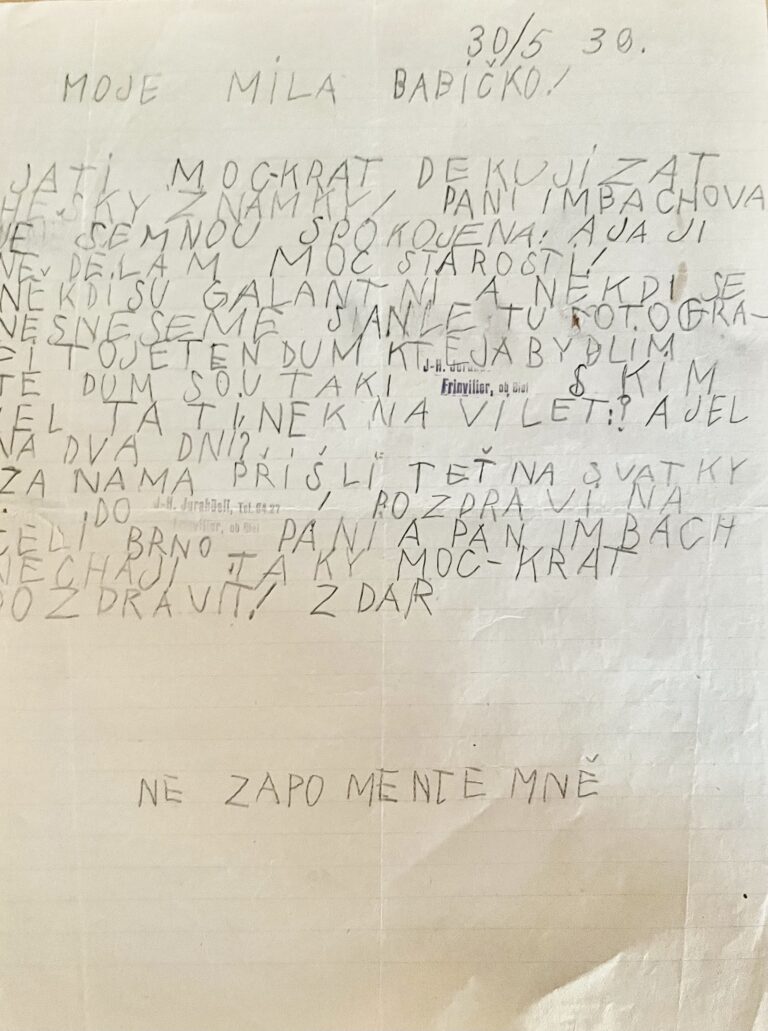 30/5 30.
MOJE MILA BABIČKO!
JATI MOC-KRAT DEKUJI ZAT
HESKY ZNAMKY! PANI IMBACHOVA
JE SEMNOU SPOKOJENA: A JA JI
NE DELAM MOC STAROSTI!
NĚKDI SU GALANTNI A NĚKDI SE
NESNESEME TU FOTOGRA-
FI TO JE TEN DUM KTE JA BYDLIM
TE DUM SOU TAKI S KIM
JEL TATINEK NA VILET:? A JEL
NA DVA DNI?
ZA NAMA PŘIŠLI TEŤ NA SVATKY
DO ! POZDRAVI NA
CELI BRNO PANI A PAN IMBACH
NECHAJI TAKY MOC-KRAT
POZDRAVIT! ZDAR
J-H.
Frinvilier, ob Biel
J-H. Tel. 64 27
Frinvilier, ob Biel
NE ZAPOMENTE MNĚ